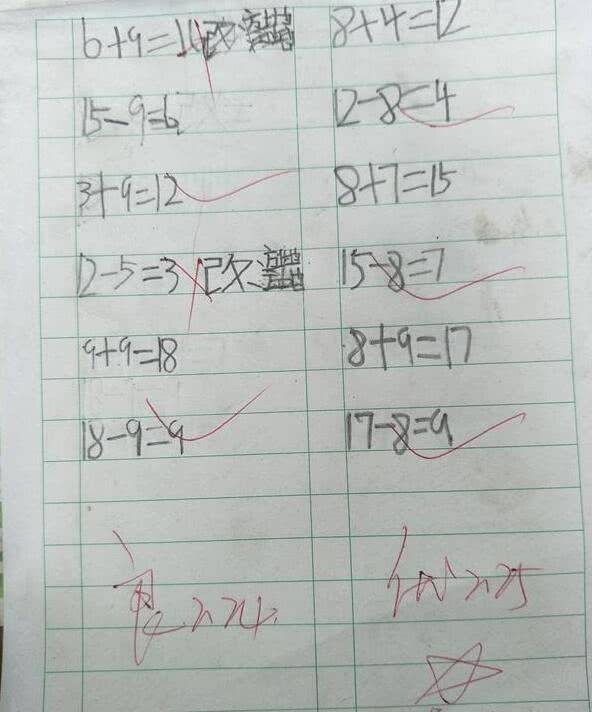 6+9= 改
15-9=6
3+9=12
12-5=3 改
9+9=18
18-9=9
8+4=12
12-8=4
8+7=15
15-8=7
8+9=17
17-8=9